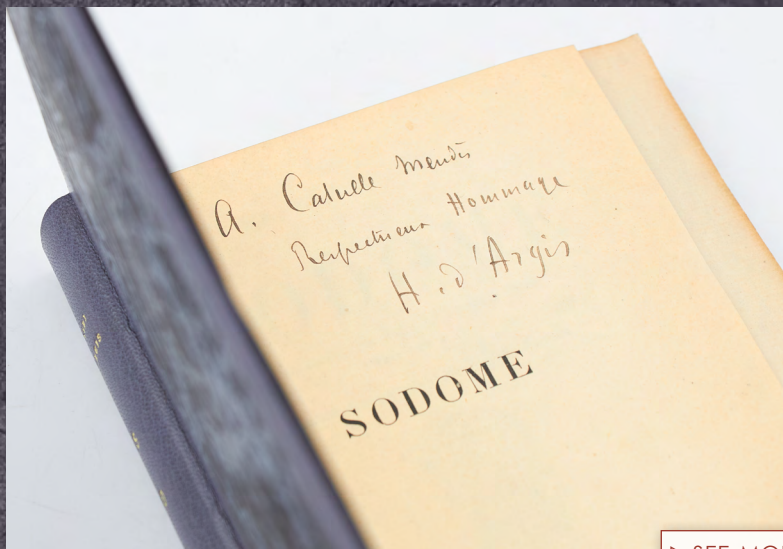 A. Catulle Mendès
Respectueux Hommage
H. d'Argis
SODOME
SEE MO